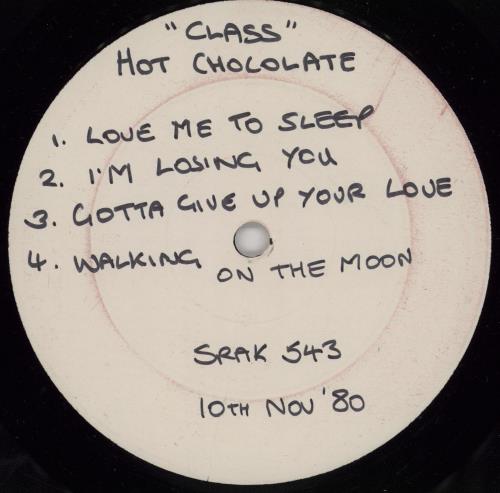 "CLASS"
HOT CHOCOLATE
1. LOVE ME TO SLEEP
2. I'M LOSING YOU
3. GOTTA GIVE UP YOUR LOVE
4. WALKING ON THE MOON
SRAK 543
10TH NOV '80